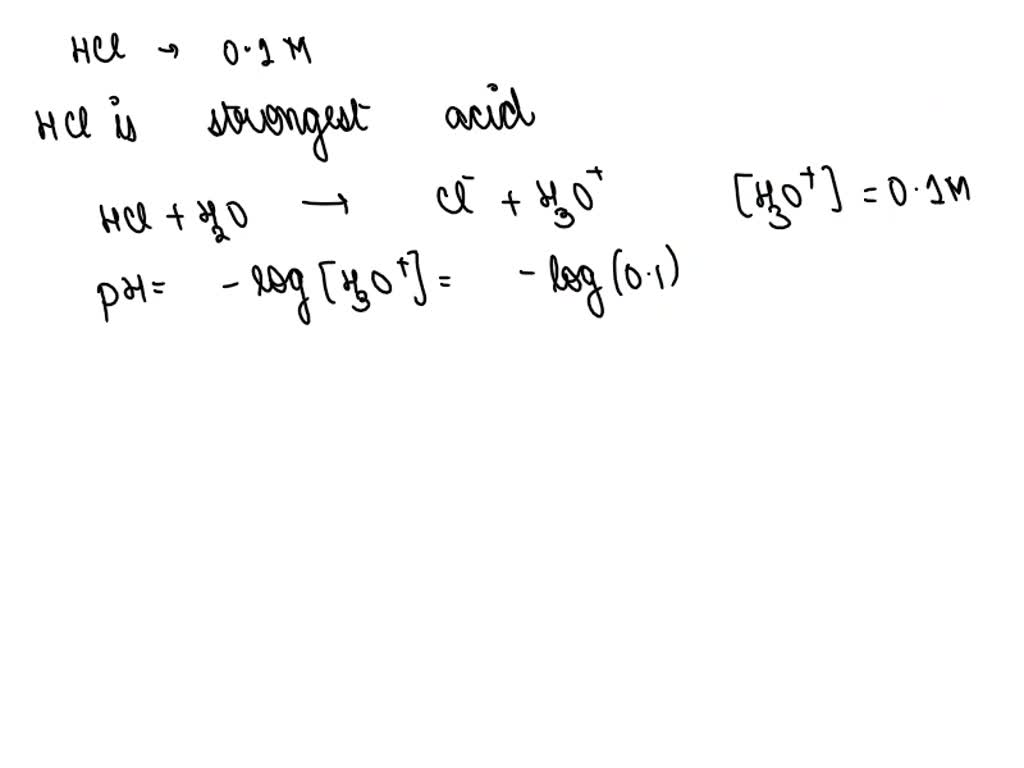 HCl → 0.1 M
HCl is strongest acid
HCl + H₂O → Cl⁻ + H₃O⁺ [H₃O⁺] = 0.1M
pH = - log [H₃O⁺] = - log (0.1)